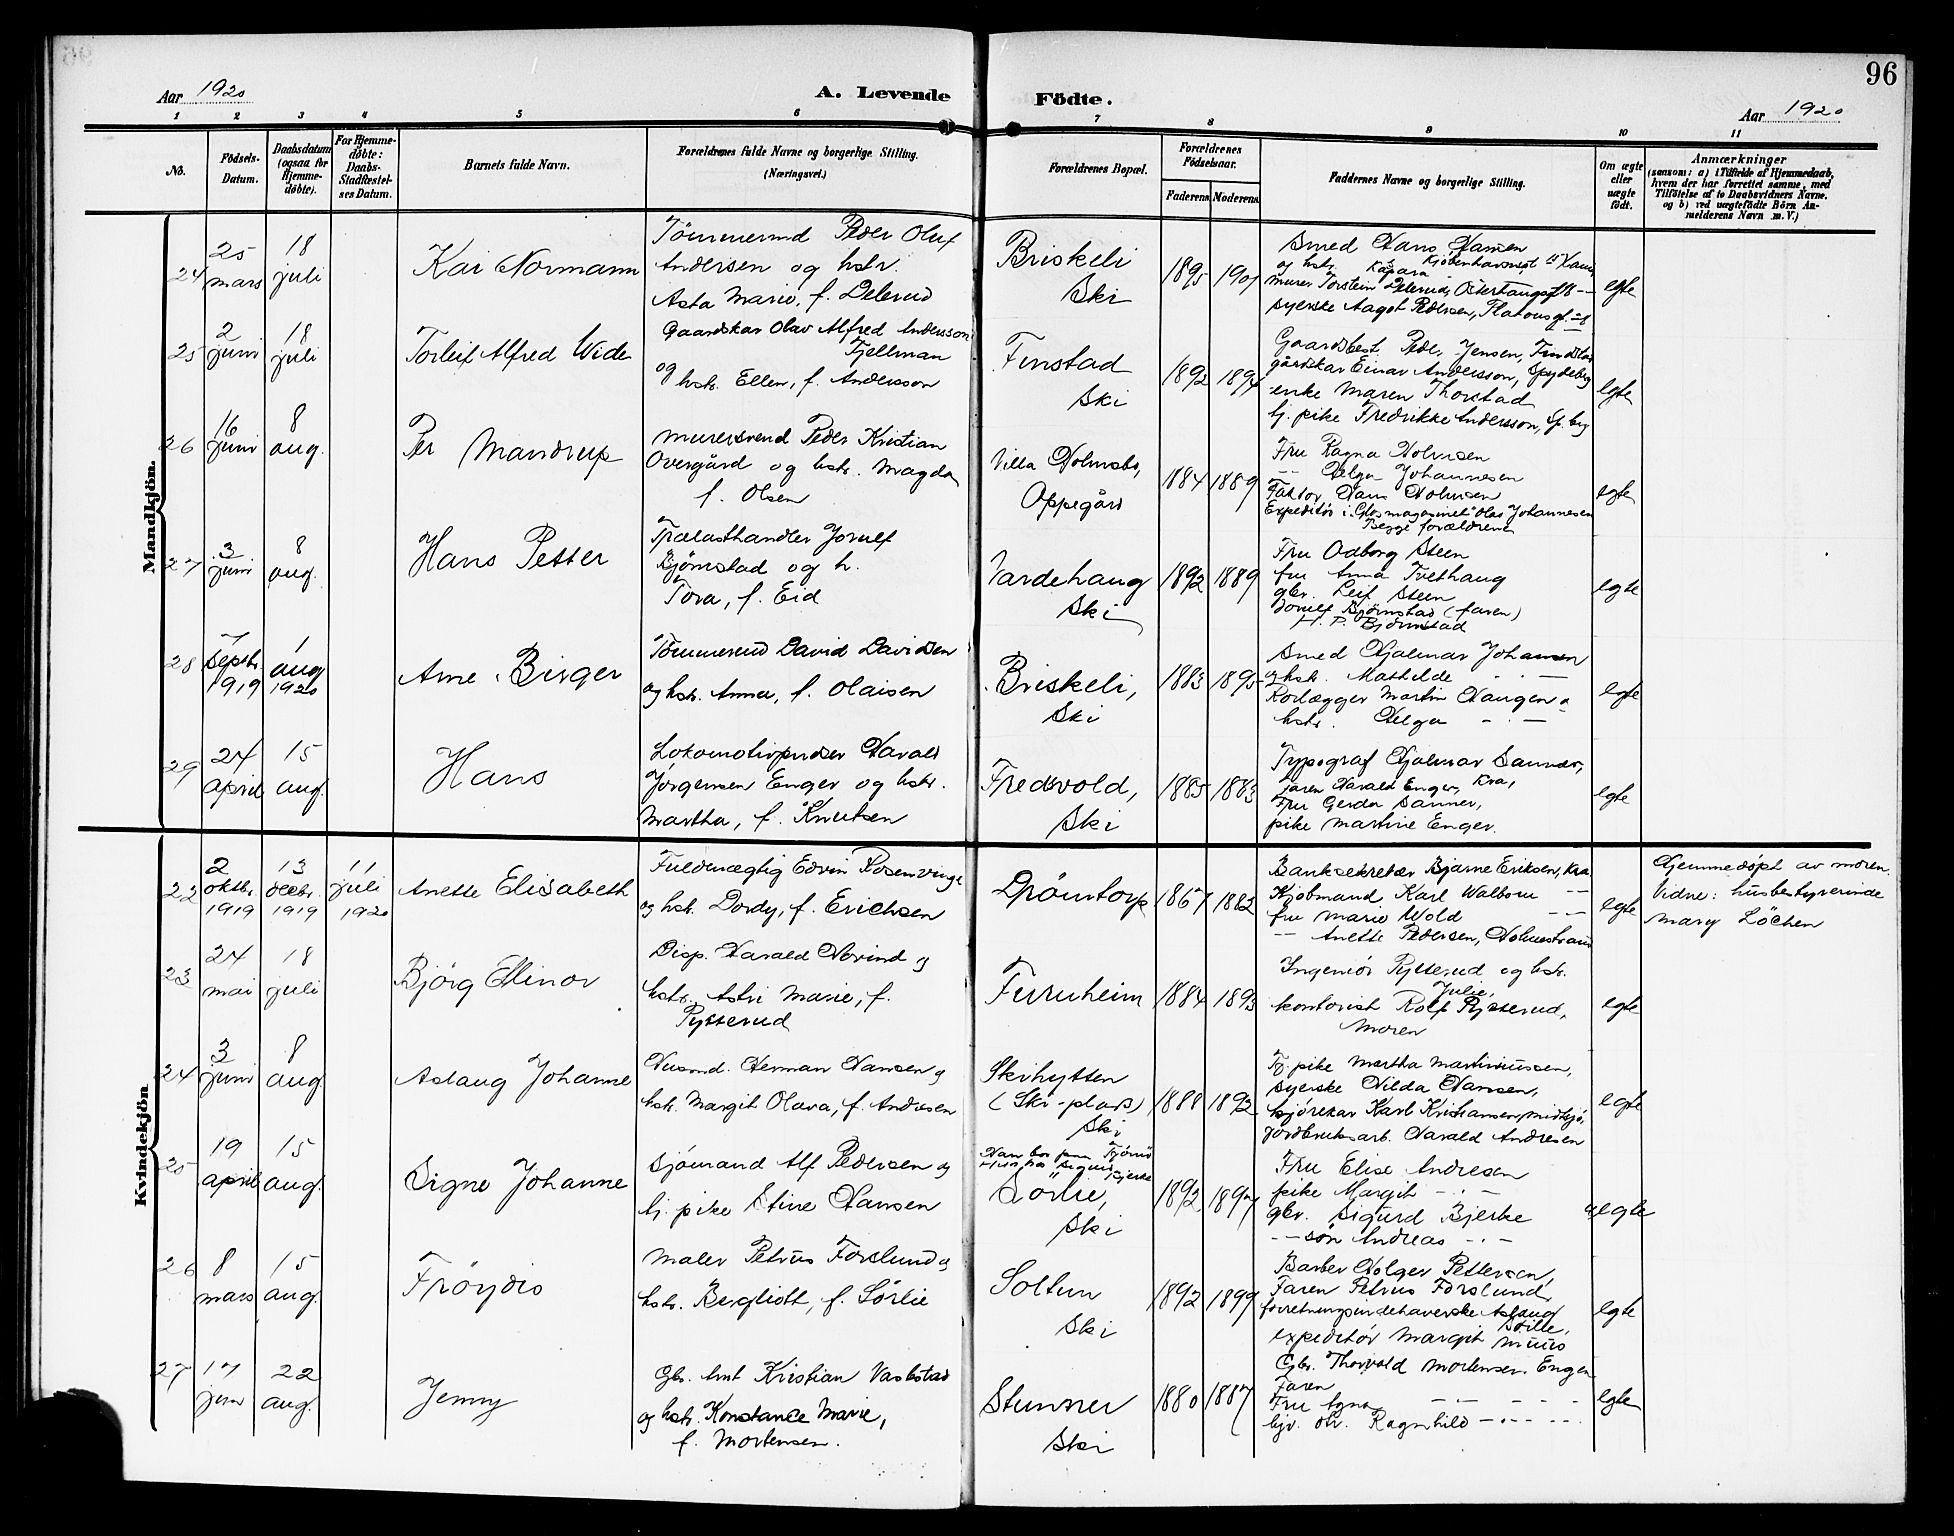 96
Aar 1920
A. Levende Födte.
Aar 1920
1 2 3 4 5 6 7 8 9 10 11
No.
Födsels-Datum.
Daabsdatum (ogsaa for Hjemme-döbte).
For Hjemme-döbte: Daabs-Stadfæstel-ses Datum.
Barnets fulde Navn.
Forældrenes fulde Navne og borgerlige Stilling.
(Næringsvei.)
Forældrenes Bopæl.
Forældrenes Födselsaar.
Faderens Moderens
Faddernes Navne og borgerlige Stilling.
Om ægte eller uægte födt.
Anmærkninger
(saasom: a) i Tilfælde af Hjemmedaab,
hvem der har forrettet samme, med
Tilföielse af to Daabsvidners Navne.
og b) ved uægtefödte Börn An-
melderens Navn m. V.)
Mandkjön.
24 25 mars 18 juli Kai Normann
Tömmermd Peder Oluf
Andersen og hstr.
Asta Marie, f. Delerud
Briskeli
Ski
1895 1901
Smed Hans Hansen
og hstr. Kapara
murer Torstein Delerud,
syerske Aagot Pedersen,
egte
25 2 juni 18 juli Torleif Alfred Wide
Gaardskar Olav Alfred Andersson
Fjellman
og hstr. Ellen, f. Andersson
Finstad
Ski
1892 1894
Gaardbest. Peder Jensen, Finstad
gårdskar Einar Andersson, Spydeberg
enke Maren Thorstad
tj. pike Fredrikke Andersson, Sp. brg
egte
26 16 juni 8 aug. Per Mandrup
Murersvend Peder Kristian
Overgård og hstr. Magda
f. Olsen
Villa Holmsbo,
Oppegård
1884 1889
Fru Ragna Holmsen
-- Helga Johannesen
Faktor Hans Holmsen
Expeditör i Glasmagasinet Olas Johannesen
Begge forældrene
egte
27 3 juni 8 aug. Hans Petter
Trælasthandler Jorulf
Bjørnstad og h.
Tora, f. Eid
Vardehaug
Ski
1892 1889
Fru Odborg Steen
fru Anna Tvethaug
gbr. Leif Steen
Jorulf Bjørnstad (faren)
H. P. Bjørnstad
egte
28 7 Septbr. 1919 1 aug 1920 Arne Birger
Tömmermd David Davidsen
og hstr. Anna, f. Olaisen
Briskeli,
Ski
1883 1895
Smed Hjalmar Johansen
og hstr. Mathilde -.-
Rørlægger Martin Haugen o
hstr. Helga -.-
egte
29 24 april 15 aug. Hans
Lokomotivpudser Harald
Jørgensen Enger og hstr.
Martha, f. Knutsen
Fredsvold,
Ski
1885 1883
Typograf Hjalmar Sanner,
faren Harald Enger, Kra,
Fru Gerda Sanner,
pike Martine Enger.
egte
Kvindekjön
22 2 oktbr. 1919 13 decbr. 1919 11 juli 1920 Anette Elisabeth
Fuldmægtig Edvin Rosenvinge
og hstr. Dordy, f. Erichsen
Drömtorp
1867 1882
Banksekretær Bjarne Eriksen, Kra
Kjøbmand Karl Walborn --
fru Marie Wold --
-- Anette Pedersen, Holmestrand
egte
Hjemmedøpt av moren.
Vidne: husbestyrerinde
Mary Löchen
23 24 mai 18 juli Bjørg Ellinor
Disp. Harald Hovind og
hstr. Astri Marie, f.
Rytterud
Furuheim
1884 1893
Ingeniör Rytterud og hstr.
Julie,
kontorist Rolf Rytterud,
Moren
egte
24 3 juni 8 aug Aslaug Johanne
Husmd. Herman Hansen og
hstr. Margit Olava, f. Andresen
Skihytten
(Ski-plads)
Ski
1888 1892
Tj. pike Martha Martiniussen,
syerske Hilda Hansen,
kjørekar Karl Kristiansen, Midsjø,
jordbruksarb. Harald Andresen
egte
25 19 april 15 aug. Signe Johanne
Sjømand Alf Pedersen og
tj. pike Stine Hansen
Han bor paa
Hun hos Sigurd Bjerke
Sørlie,
Ski
1892 1897
Fru Elise Andresen
pike Margit -.-
gbr. Sigurd Bjerke
-- søn Andreas -.-
uegte
26 8 mars 15 aug. Frøydis
Maler Petrus Forslund og
hstr. Bergliott, f. Sørlie
Soltun
Ski
1892 1899
Barber Holger Pettersen,
Faren Petrus Forslund,
forretningsindehaverske Aslaug
Sørlie,
expeditör Margit Muus
egte
27 17 juni 22 aug. Jenny
Gbr. Ant Kristian Vastestad
og hstr. Konstance Marie,
f. Mortensen.
Stunner
Ski
1880 1887
Gbr. Thorvald Mortensen. Engen
Faren
Fru Agna -.-
hjv. dtr. Ragnhild -.-
egte